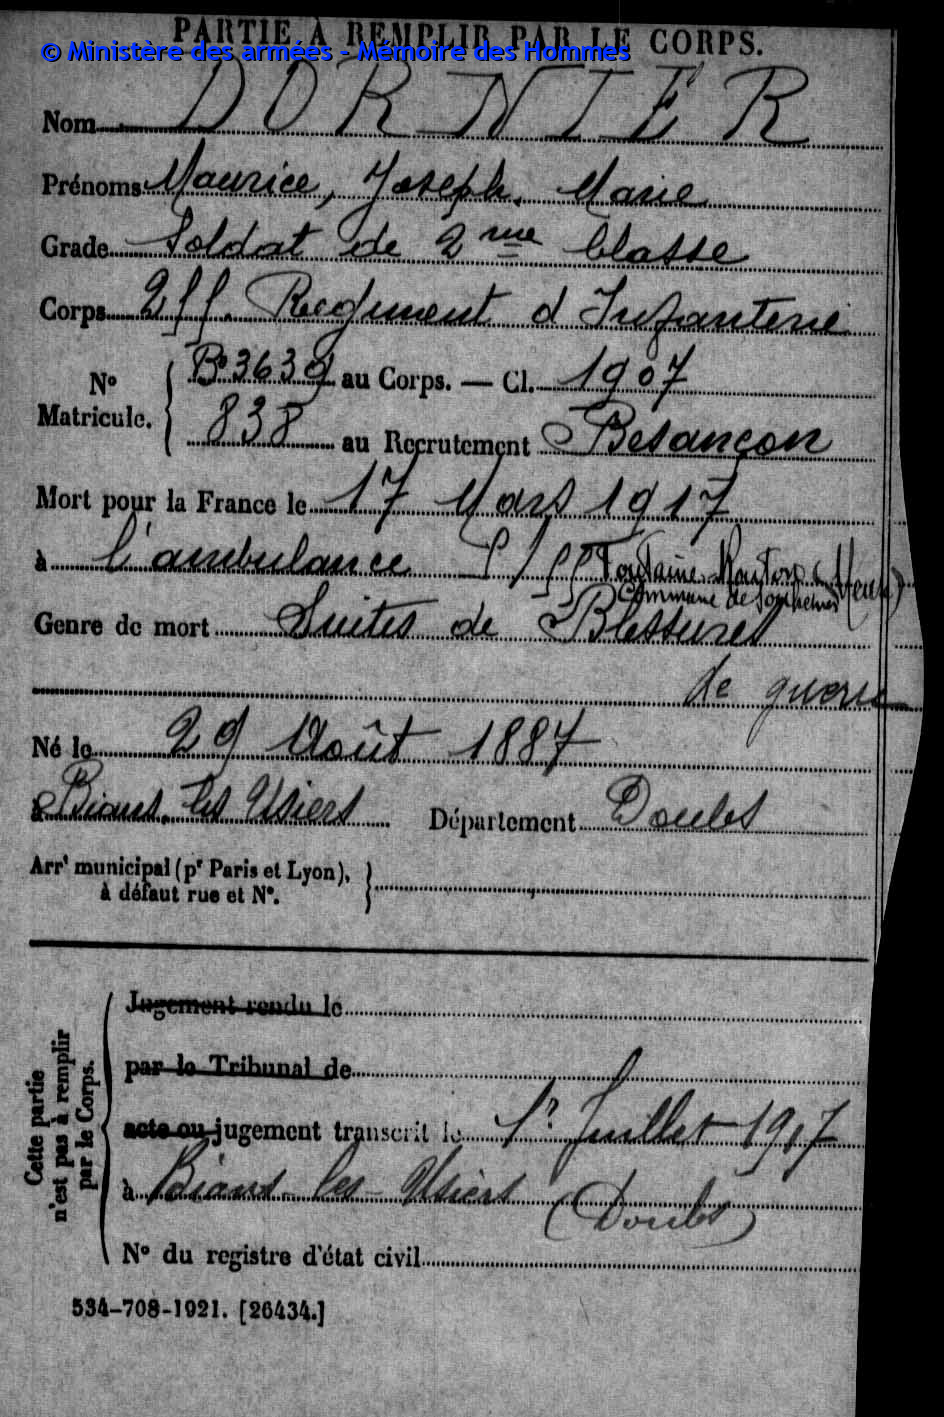 PARTIE À REMPLIR PAR LE CORPS.
© Ministère des armées - Mémoire des Hommes
Nom DORNIER
Prénoms Maurice, Joseph, Marie
Grade Soldat de 2me Classe
Corps 255. Regiment d Infanterie
No Matricule. B3639 au Corps. — Cl. 1907
838 au Recrutement Besançon
Mort pour la France le 17 Mars 1917
à l'ambulance 5/55 Fontaine Routon (Meuse)
Commune de
Genre de mort Suites de Blessures
de guerre
Né le 29 Août 1887
à Bians-les Usiers Département Doubs
Arrt municipal (pr Paris et Lyon),
à défaut rue et No.
Cette partie
n'est pas à remplir
par le Corps.
Jugement rendu le
par le Tribunal de
acte ou jugement transcrit le 1r Juillet 1917
à Bians-les-Usiers (Doubs)
No du registre d'état civil
534-708-1921. [26434.]